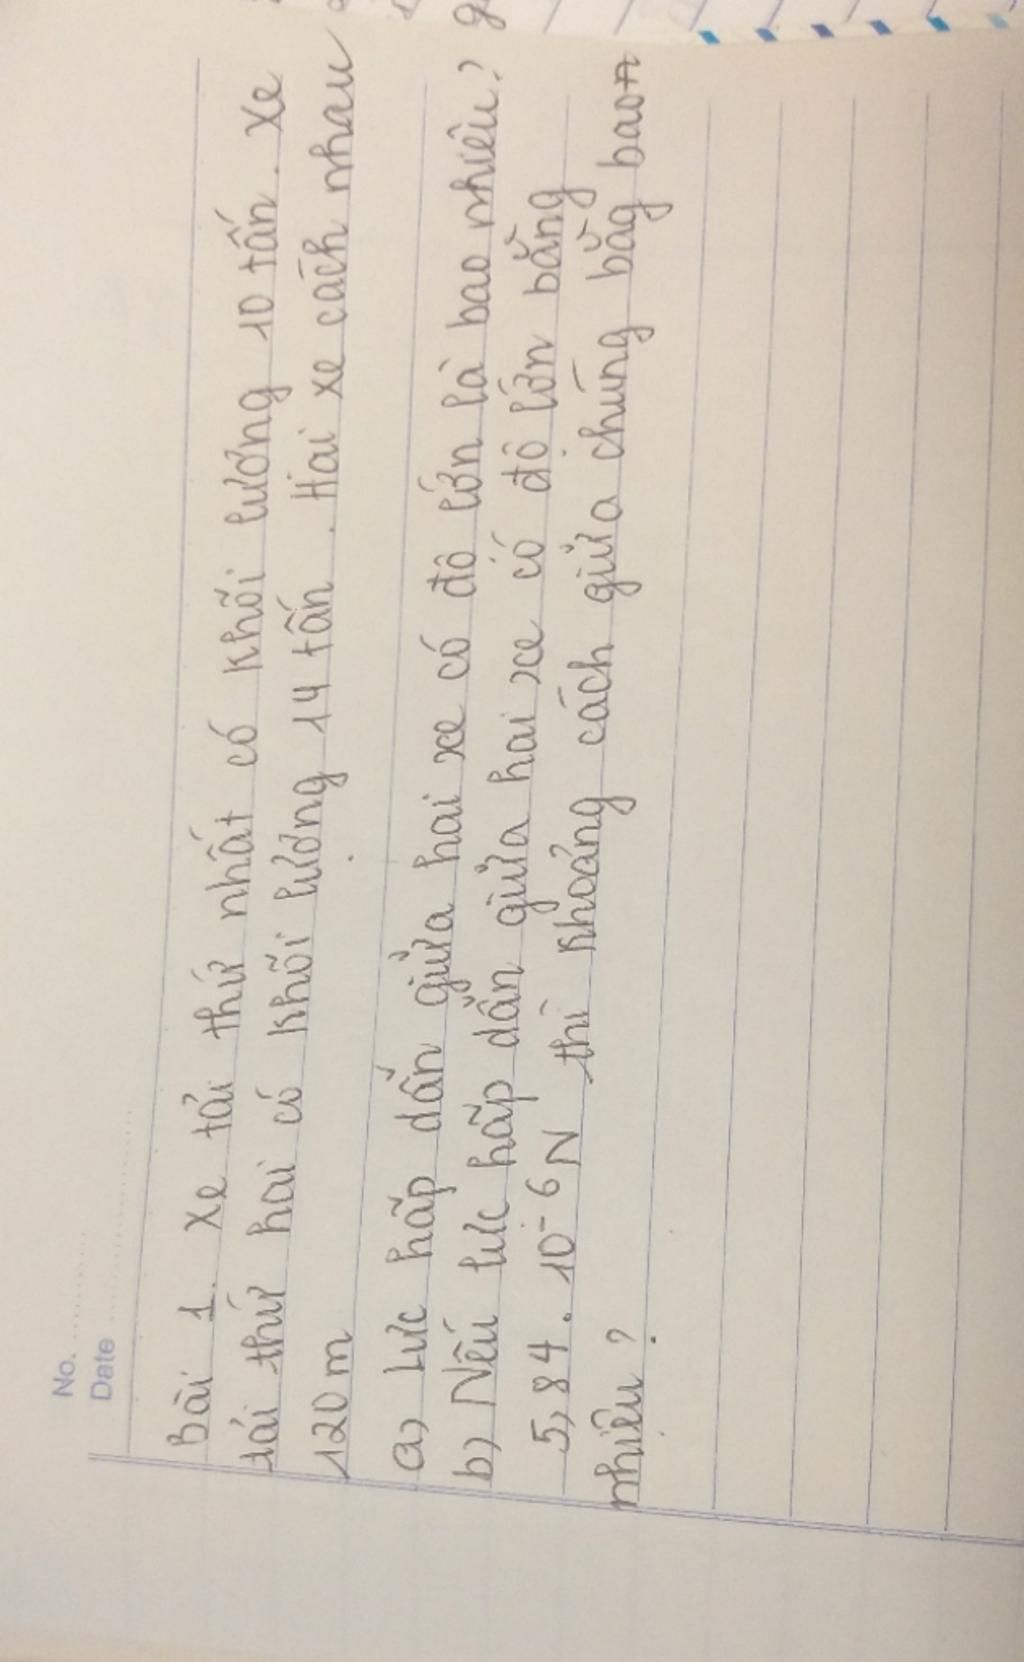 No.
Date
Bài 1. Xe tải thứ nhất có khối lượng 10 tấn. Xe
tải thứ hai có khối lượng 14 tấn. Hai xe cách nhau
120 m
a) Lực hấp dẫn giữa hai xe có độ lớn là bao nhiêu?
b) Nếu lực hấp dẫn giữa hai xe có độ lớn bằng
5,84.10⁻⁶N thì khoảng cách giữa chúng bằg bao
nhiêu?